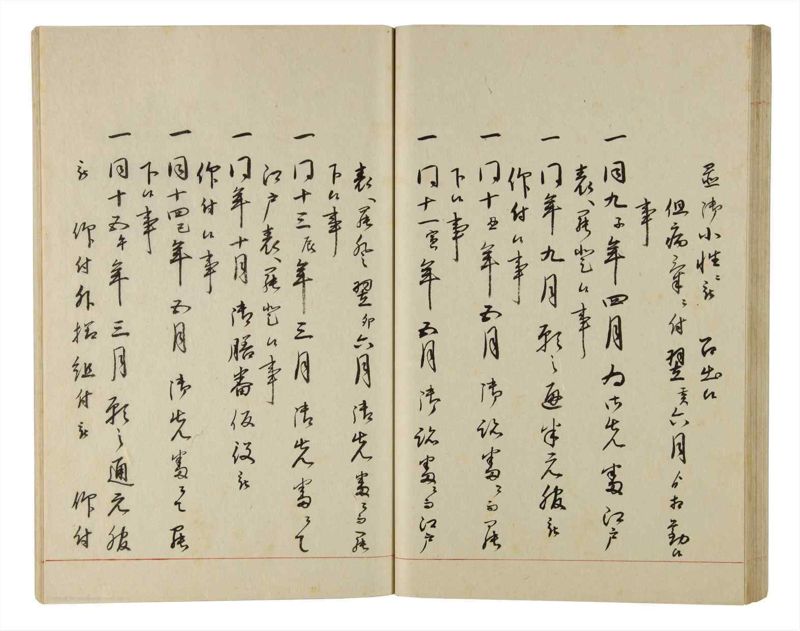 並御小性ニ被 召出候
但病気ニ付翌亥六月ゟ相勤候
事
一 同九子年四月為御先番江戸
表へ罷登候事
一 同年九月願之通半元服被
仰付候事
一 同十丑年五月御跡番ニ而罷
下候事
一 同十一寅年五月御跡番ニ而江戸
表へ罷登翌卯六月御先番ニ而罷
下候事
一 同十三辰年三月御先番ニて
江戸表へ罷登候事
一 同年十月御膳番仮役被
仰付候事
一 同十四巳年五月御先番ニて罷
下候事
一 同十五午年三月願之通元服
被 仰付外様組付被 仰付